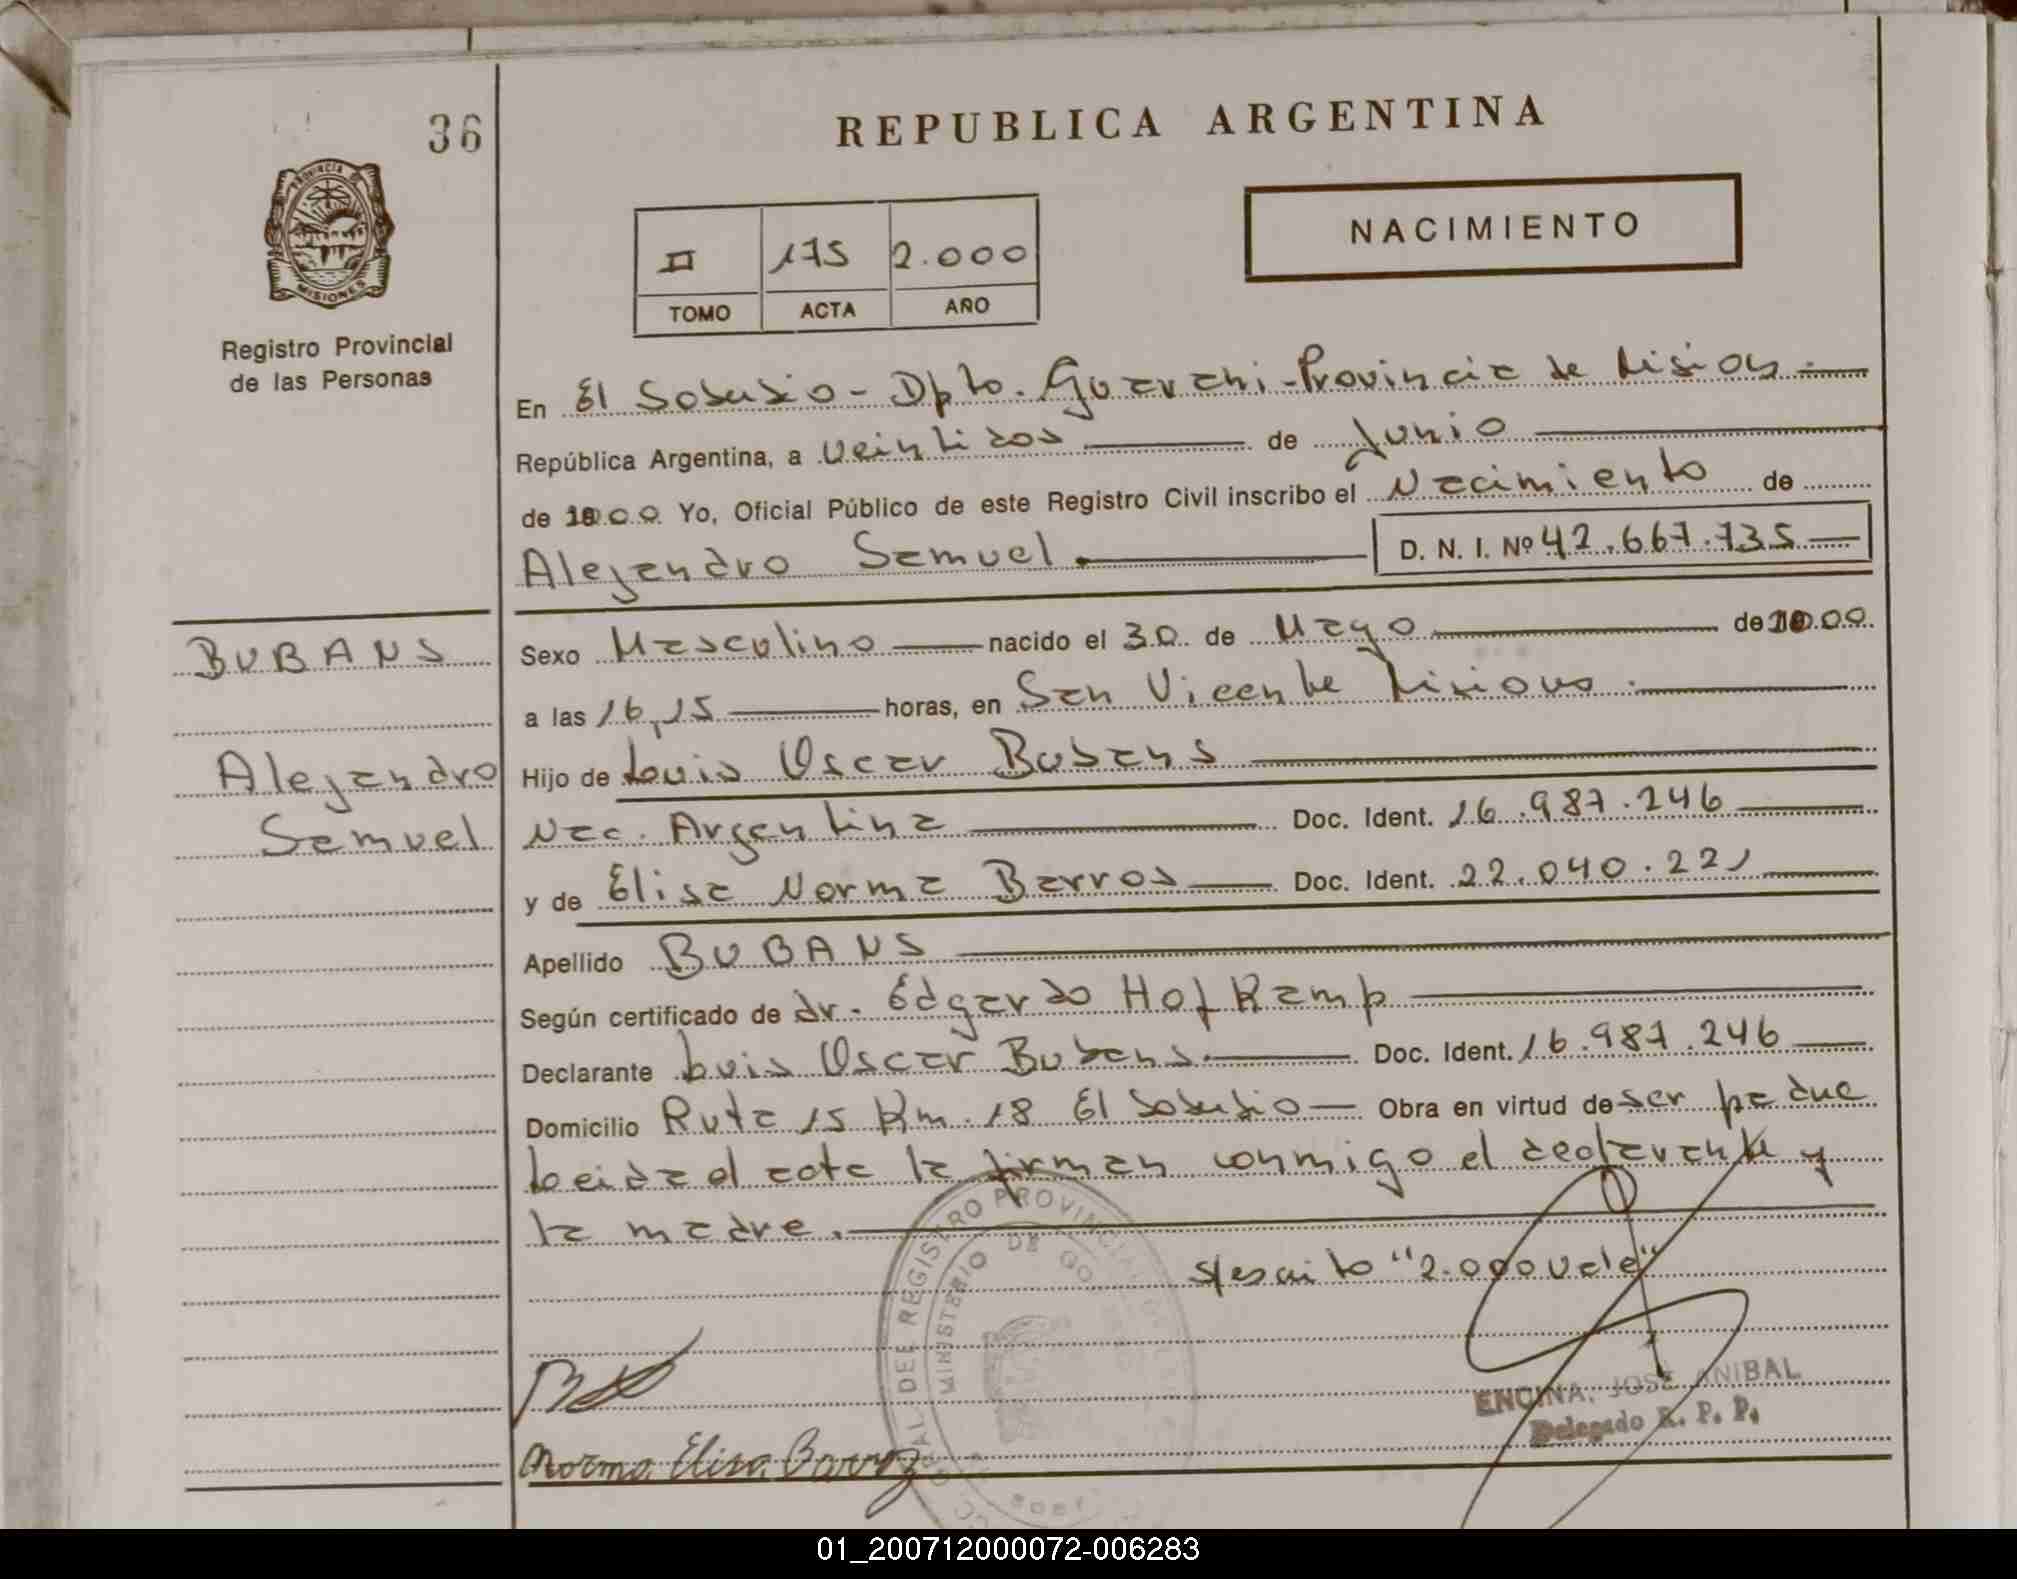 36
REPUBLICA ARGENTINA
PROVINCIA DE
MISIONES
Registro Provincial
de las Personas
NACIMIENTO
II 175 2.000
TOMO ACTA AÑO
En El Soberbio - Dpto. Guarani - Provincia de Misiones
República Argentina, a veintidos de Junio
de 2000 Yo, Oficial Público de este Registro Civil inscribo el Nacimiento de
Alejandro Samuel D. N. I. Nº 42.667.735
BUBANS
Alejandro
Samuel
Sexo Masculino nacido el 30 de Mayo de 2000
a las 16,15 horas, en San Vicente Misiones
Hijo de Luis Oscar Bubans
Nac. Argentina Doc. Ident. 16.987.246
y de Elisa Norma Barros Doc. Ident. 22.040.221
Apellido BUBANS
Según certificado de dr. Edgardo Hof Kamp
Declarante Luis Oscar Bubans Doc. Ident. 16.987.246
Domicilio Ruta 15 Km. 18 El Soberbio Obra en virtud de ser padre
Leida el acta la firman conmigo el declarante y
la madre.
s/escrito "2.000 vale"
REGISTRO PROVINCIAL
MINISTERIO DE GO
ENCINA, JOSE ANIBAL
Delegado R. P. P.
Norma Elisa Barroz
01_200712000072-006283